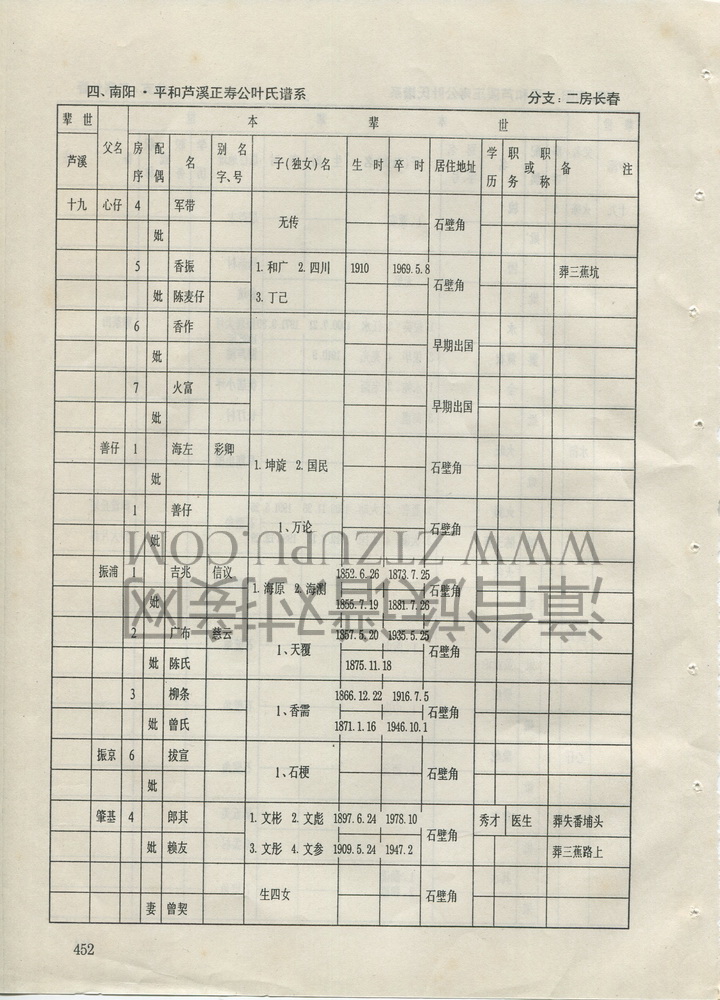 四、南阳·平和芦溪正寿公叶氏谱系 分支：二房长春
辈世 本辈世
芦溪 父名 房序 配偶 名 别名字、号 子(独女)名 生时 卒时 居住地址 学历 职务或职称 备注
十九 心仔 4 军带 无传 石壁角
妣
5 香振 1.和广 2.四川 1910 1969.5.8 石壁角 葬三蕉坑
妣 陈麦仔 3.丁己
6 香作 早期出国
妣
7 火富 早期出国
妣
善仔 1 海左 彩卿 1.坤旋 2.国民 石壁角
妣
1 善仔 1、万论 石壁角
妣
振浦 吉兆 信议 1.海原 2.海测 1852.6.26 1873.7.25 石壁角
妣 1855.7.19 1881.7.26
2 广布 慈云 1、天覆 1857.5.20 1935.5.25 石壁角
妣 陈氏 1875.11.18
3 柳条 1、香需 1866.12.22 1916.7.5 石壁角
妣 曾氏 1871.1.16 1946.10.1
振京 6 拔宣 1、石梗 石壁角
妣
肇基 4 郎其 1.文彬 2.文彪 1897.6.24 1978.10 石壁角 秀才 医生 葬失番埔头
妣 赖友 3.文彤 4.文参 1909.5.24 1947.2 葬三蕉路上
生四女 石壁角
妻 曾契
452
漳台族谱对接网
WWW.ZTZUPU.COM